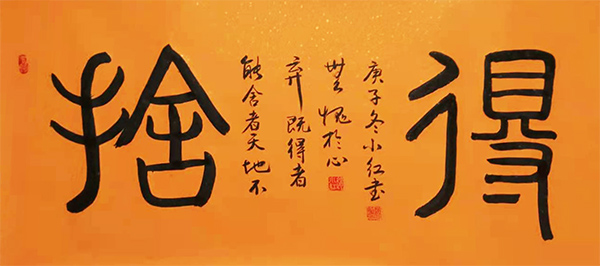 捨
能舍者天地不
弃既得者
無愧於心
庚子冬小红書
得